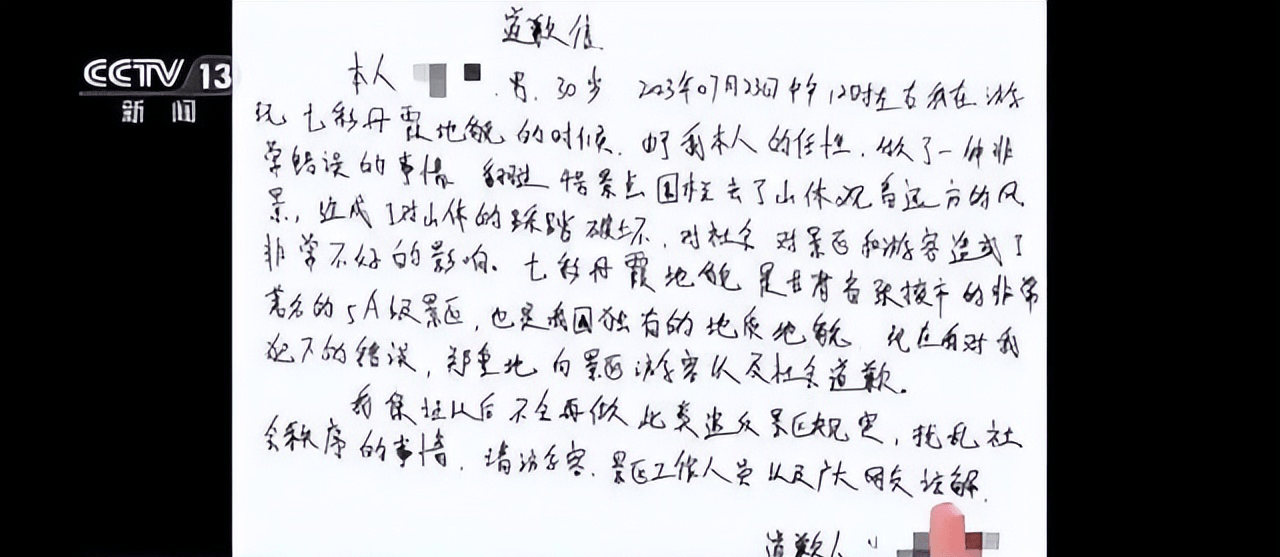 CCTV 13
新闻
道歉信
本人 男、30岁 2023年07月23日中午12时左右我在游
玩七彩丹霞地貌的时候、由于我本人的任性、做了一件非
常错误的事情 翻越 景点围栏去了山体观看远方的风
景，造成了对山体的踩踏破坏、对社会对景区和游客造成了
非常不好的影响。七彩丹霞地貌是甘肃省张掖市的非常
著名的5A级景区，也是我国独有的地质地貌 现在我对我
犯下的错误，郑重地向景区游客以及社会道歉。
我保证以后不会再做此类违反景区规定，扰乱社
会秩序的事情、请游客、景区工作人员以及广大网友谅解、
道歉人